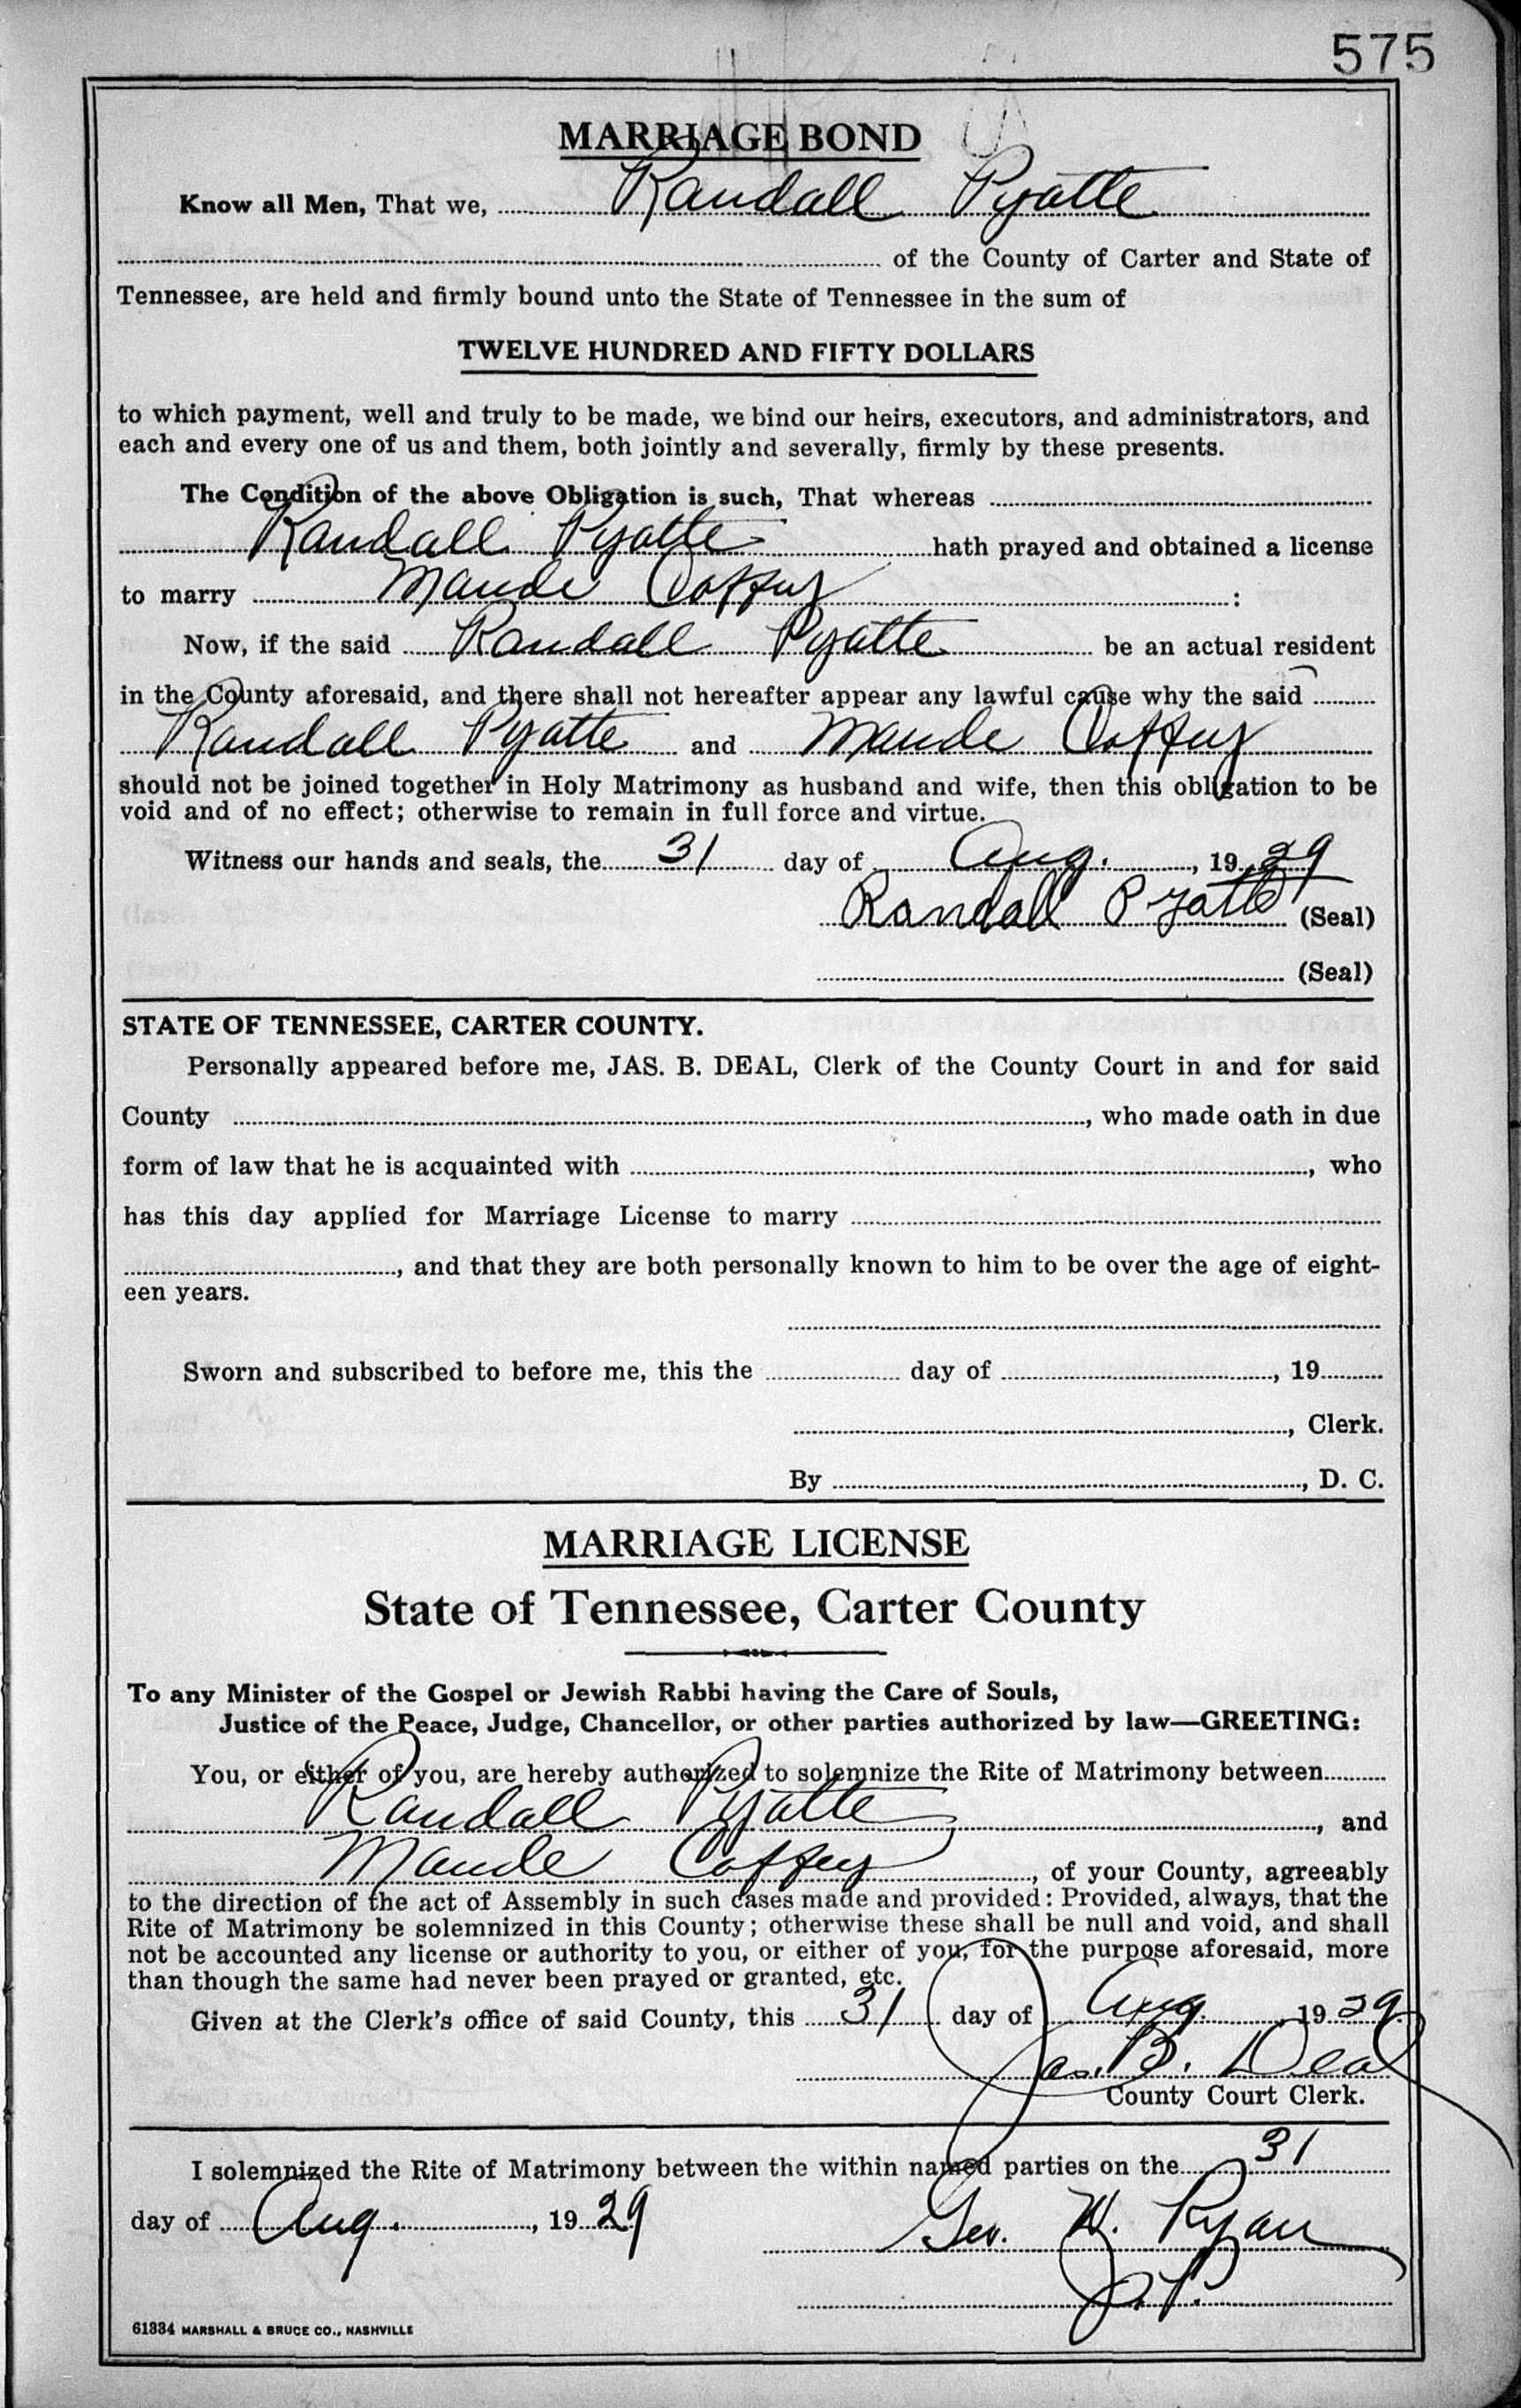 575
MARRIAGE BOND
Know all Men, That we, Randall Pyatte
of the County of Carter and State of
Tennessee, are held and firmly bound unto the State of Tennessee in the sum of
TWELVE HUNDRED AND FIFTY DOLLARS
to which payment, well and truly to be made, we bind our heirs, executors, and administrators, and
each and every one of us and them, both jointly and severally, firmly by these presents.
The Condition of the above Obligation is such, That whereas
Randall Pyatte hath prayed and obtained a license
to marry Maude Coffey :
Now, if the said Randall Pyatte be an actual resident
in the County aforesaid, and there shall not hereafter appear any lawful cause why the said
Randall Pyatte and Maude Coffey
should not be joined together in Holy Matrimony as husband and wife, then this obligation to be
void and of no effect; otherwise to remain in full force and virtue.
Witness our hands and seals, the 31 day of Aug., 1929
Randall Pyatte (Seal)
(Seal)
STATE OF TENNESSEE, CARTER COUNTY.
Personally appeared before me, JAS. B. DEAL, Clerk of the County Court in and for said
County , who made oath in due
form of law that he is acquainted with , who
has this day applied for Marriage License to marry
, and that they are both personally known to him to be over the age of eight-
een years.
Sworn and subscribed to before me, this the day of , 19
, Clerk.
By , D. C.
MARRIAGE LICENSE
State of Tennessee, Carter County
To any Minister of the Gospel or Jewish Rabbi having the Care of Souls,
Justice of the Peace, Judge, Chancellor, or other parties authorized by law—GREETING:
You, or either of you, are hereby authorized to solemnize the Rite of Matrimony between
Randall Pyatte, and
Maude Coffey, of your County, agreeably
to the direction of the act of Assembly in such cases made and provided: Provided, always, that the
Rite of Matrimony be solemnized in this County; otherwise these shall be null and void, and shall
not be accounted any license or authority to you, or either of you, for the purpose aforesaid, more
than though the same had never been prayed or granted, etc.
Given at the Clerk's office of said County, this 31 day of Aug., 1929
Jas. B. Deal
County Court Clerk.
I solemnized the Rite of Matrimony between the within named parties on the 31
day of Aug., 1929 Geo. W. Ryan
J.P.
61334 MARSHALL & BRUCE CO., NASHVILLE